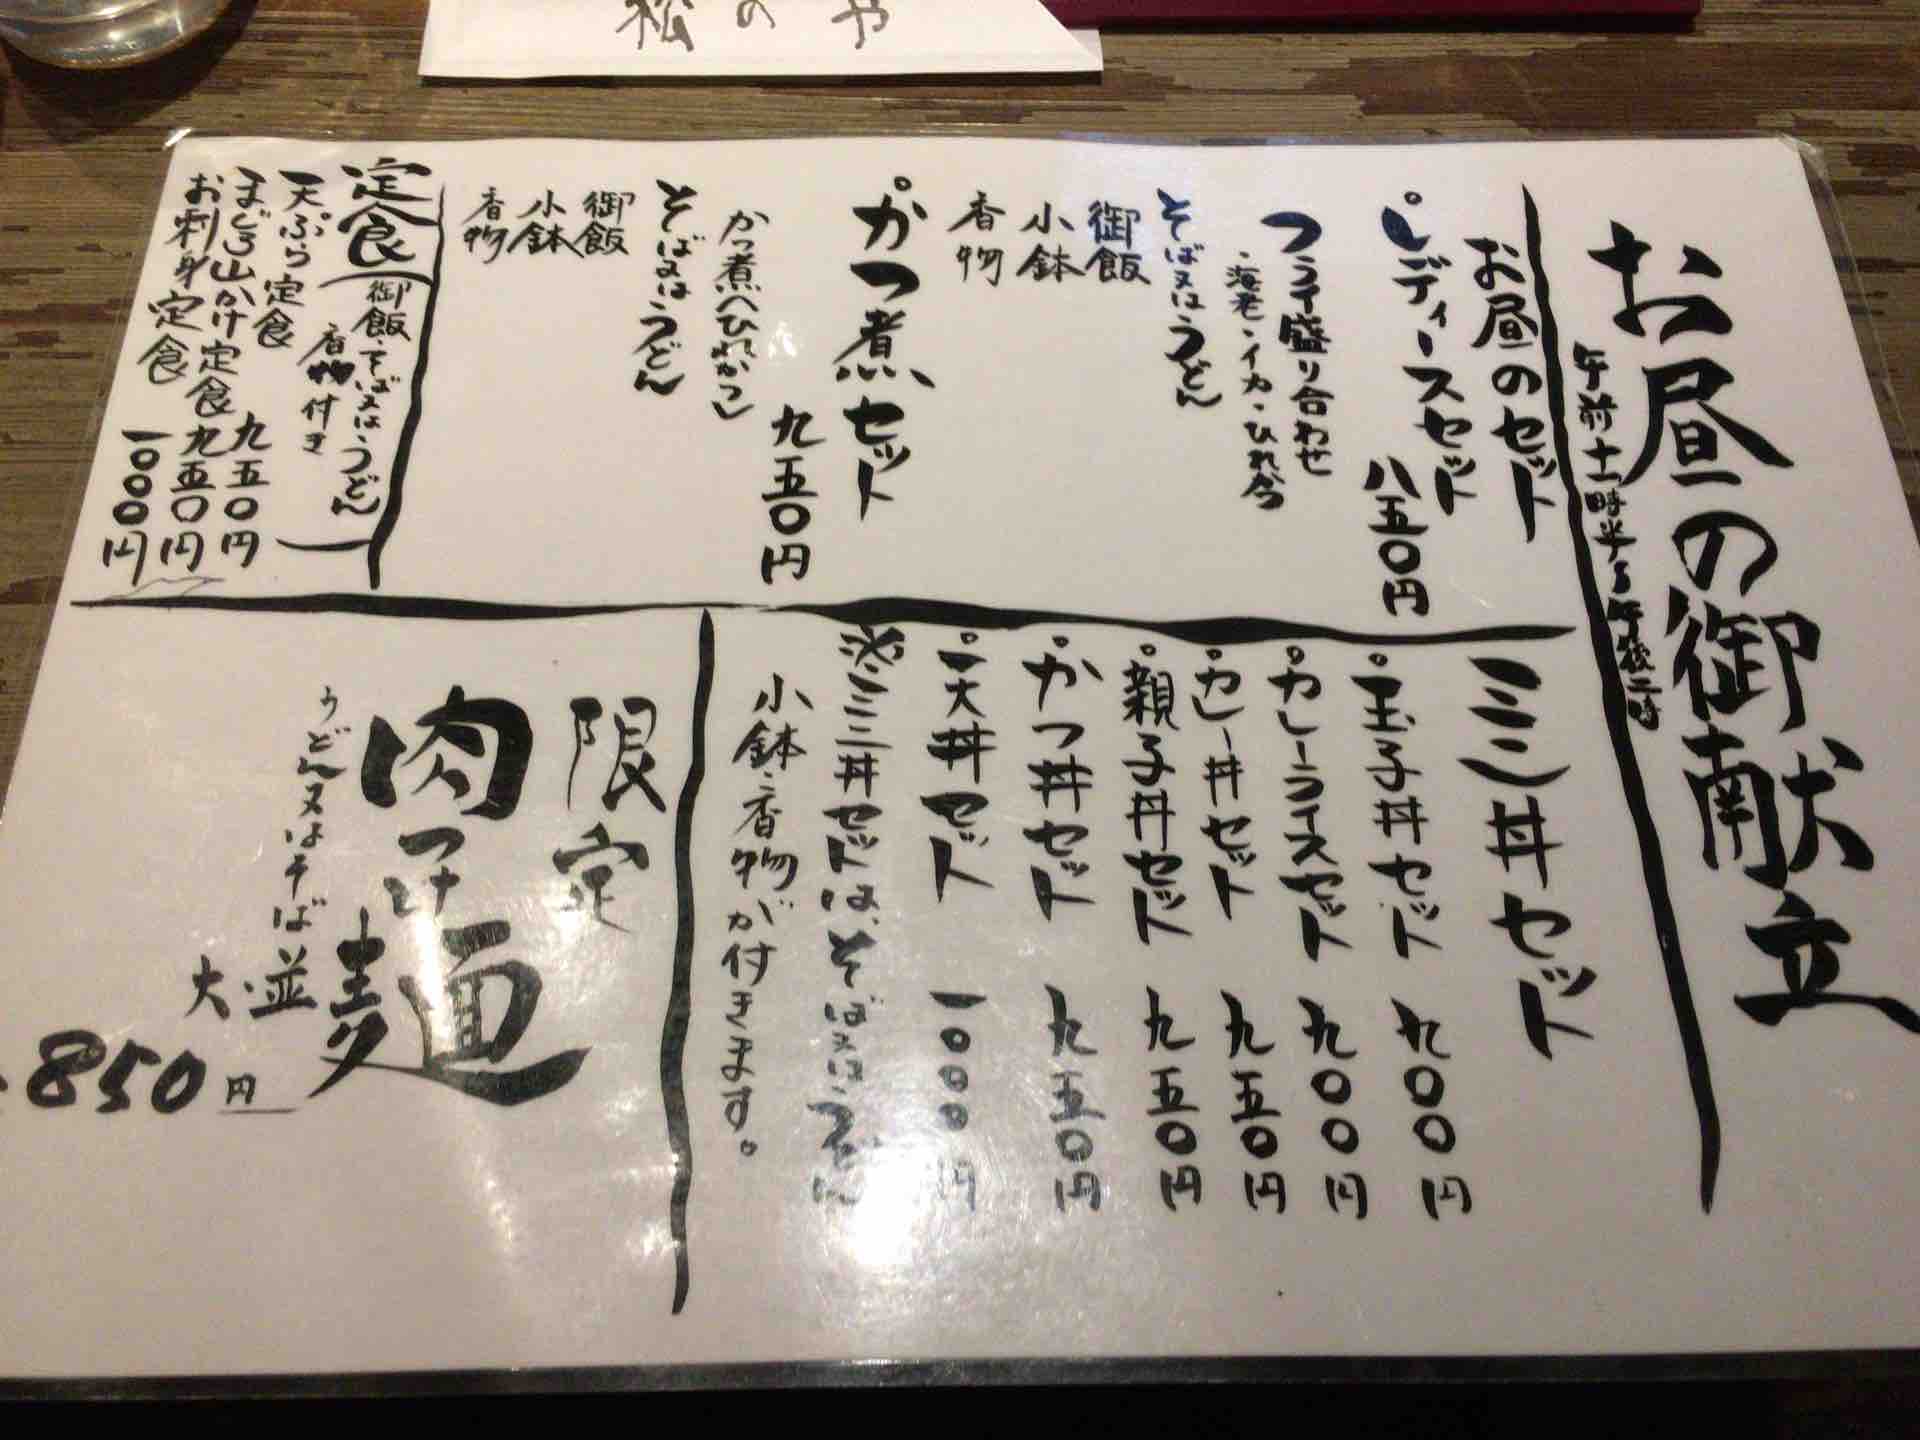 松のや
お昼の御献立
午前十一時半より午後二時
お昼のセット
・レディースセット
八五〇円
フライ盛り合わせ
・海老・イカ・ひれ
そば又はうどん
御飯
小鉢
香物
・かつ煮セット
九五〇円
かつ煮(ひれかつ)
そば又はうどん
御飯
小鉢
香物
定食(御飯・そば又はうどん
香物付き)
天ぷら定食 九五〇円
まぐろ山かけ定食 九五〇円
お刺身定食 一〇〇〇円
ミニ丼セット
・玉子丼セット 九〇〇円
・カレーライスセット 九〇〇円
・カレー丼セット 九五〇円
・親子丼セット 九五〇円
・かつ丼セット 九五〇円
・天丼セット 一〇〇〇円
※ミニ丼セットは、そば又はうどん
小鉢・香物が付きます。
限定
肉つけ麺
うどん又はそば
大・並
850円